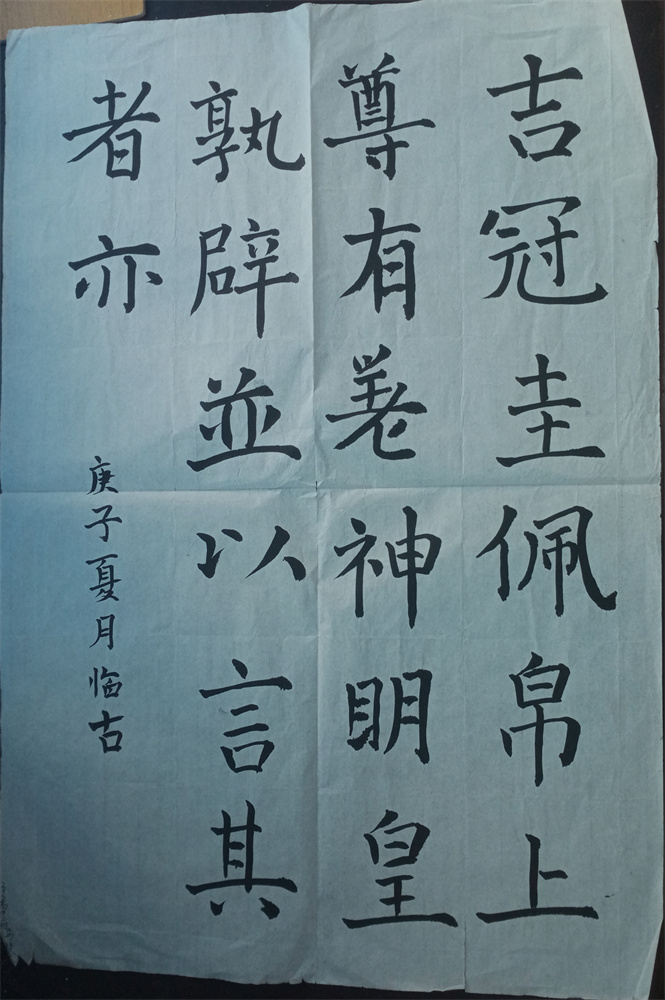 吉冠圭佩帛上
尊有神明皇
孰辟並以言其
者亦
庚子夏月临古